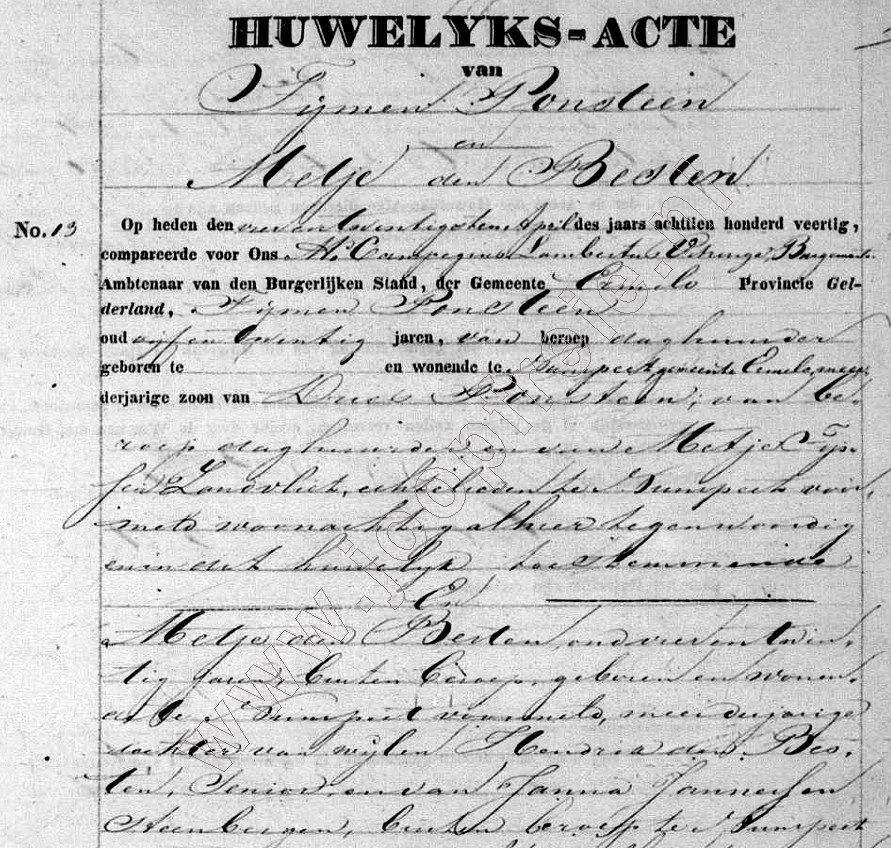 HUWELYKS-ACTE
van
Tijmen Ponsteen
en
Metje den Besten
No. 13
Op heden den vierentwintigsten April des jaars achttien honderd veertig,
compareerde voor Ons H. Campegius Lambertus Burgemeester
Ambtenaar van den Burgerlijken Stand, der Gemeente Ermelo Provincie Gel-
derland, Tijmen Ponsteen
oud vijfentwintig jaren, van beroep daghuurder
geboren te en wonende te Nunspeet gemeente Ermelo, meer
derjarige zoon van Dries Ponsteen, van be-
roep daghuurder, en van Metje Tijs-
sen Zandvliet, echtelieden te Nunspeet voor-
meld woonachtig alhier tegenwoordig
en in dit huwelijk toestemmende
En
Metje den Besten, oud vierentwin-
tig jaren, buiten beroep, geboren en wonen-
de te Nunspeet voormeld, meerderjarige
dochter van wijlen Hendrik den Bes-
ten, Senior, en van Janna Jannessen
Steenbergen, buiten beroep te Nunspeet
www.jcopfraie.nl